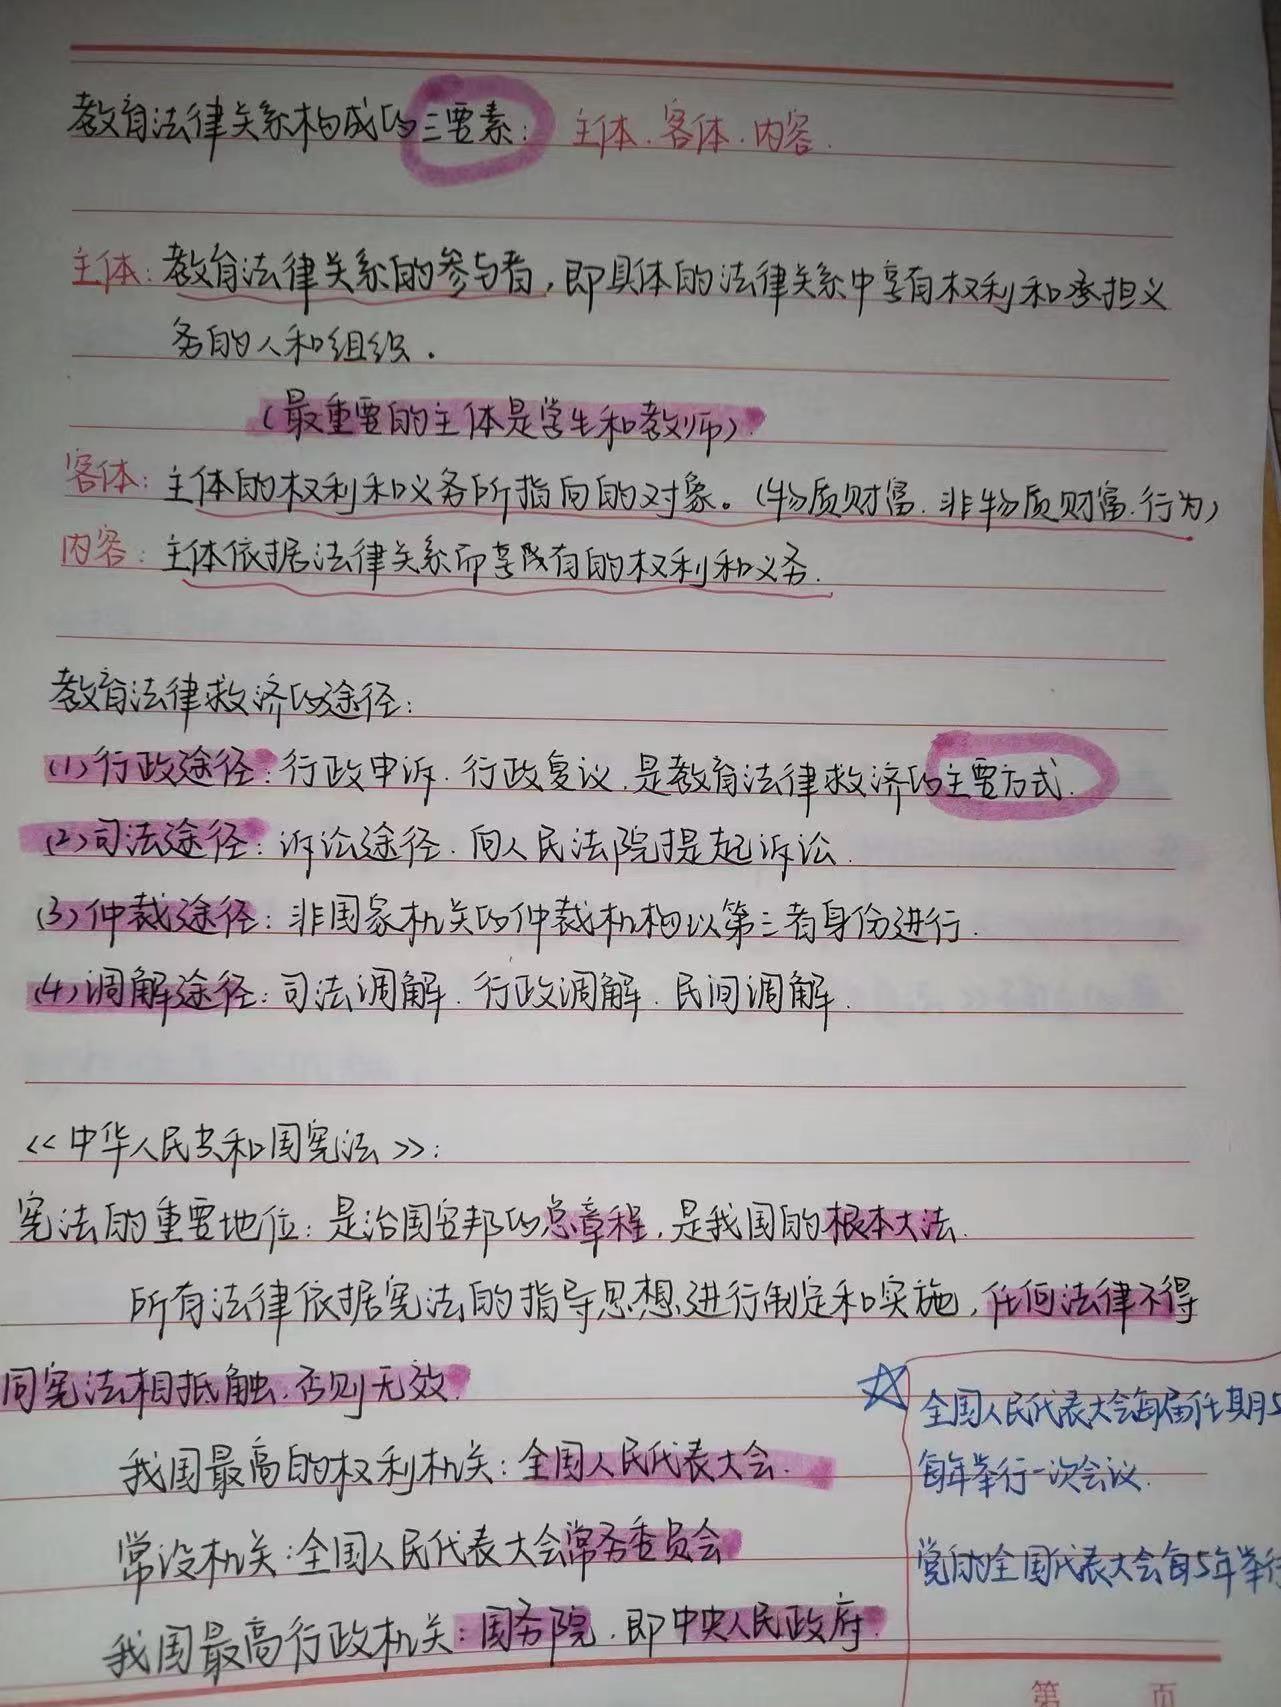 教育法律关系构成的三要素：主体.客体.内容.
主体：教育法律关系的参与者，即具体的法律关系中享有权利和承担义
务的人和组织.
（最重要的主体是学生和教师）.
客体：主体的权利和义务所指向的对象。（物质财富.非物质财富.行为）
内容：主体依据法律关系而享有的权利和义务.
教育法律救济的途径：
(1)行政途径：行政申诉.行政复议.是教育法律救济的主要方式.
(2)司法途径：诉讼途径.向人民法院提起诉讼.
(3)仲裁途径：非国家机关的仲裁机构以第三者身份进行.
(4)调解途径：司法调解.行政调解.民间调解.
<<中华人民共和国宪法>>：
宪法的重要地位：是治国安邦的总章程，是我国的根本大法.
所有法律依据宪法的指导思想进行制定和实施，任何法律不得
同宪法相抵触.否则无效.
我国最高的权利机关：全国人民代表大会.
常设机关：全国人民代表大会常务委员会
我国最高行政机关：国务院.即中央人民政府.
☆全国人民代表大会每届任期5
每年举行一次会议.
党的全国代表大会每5年举行
第 页